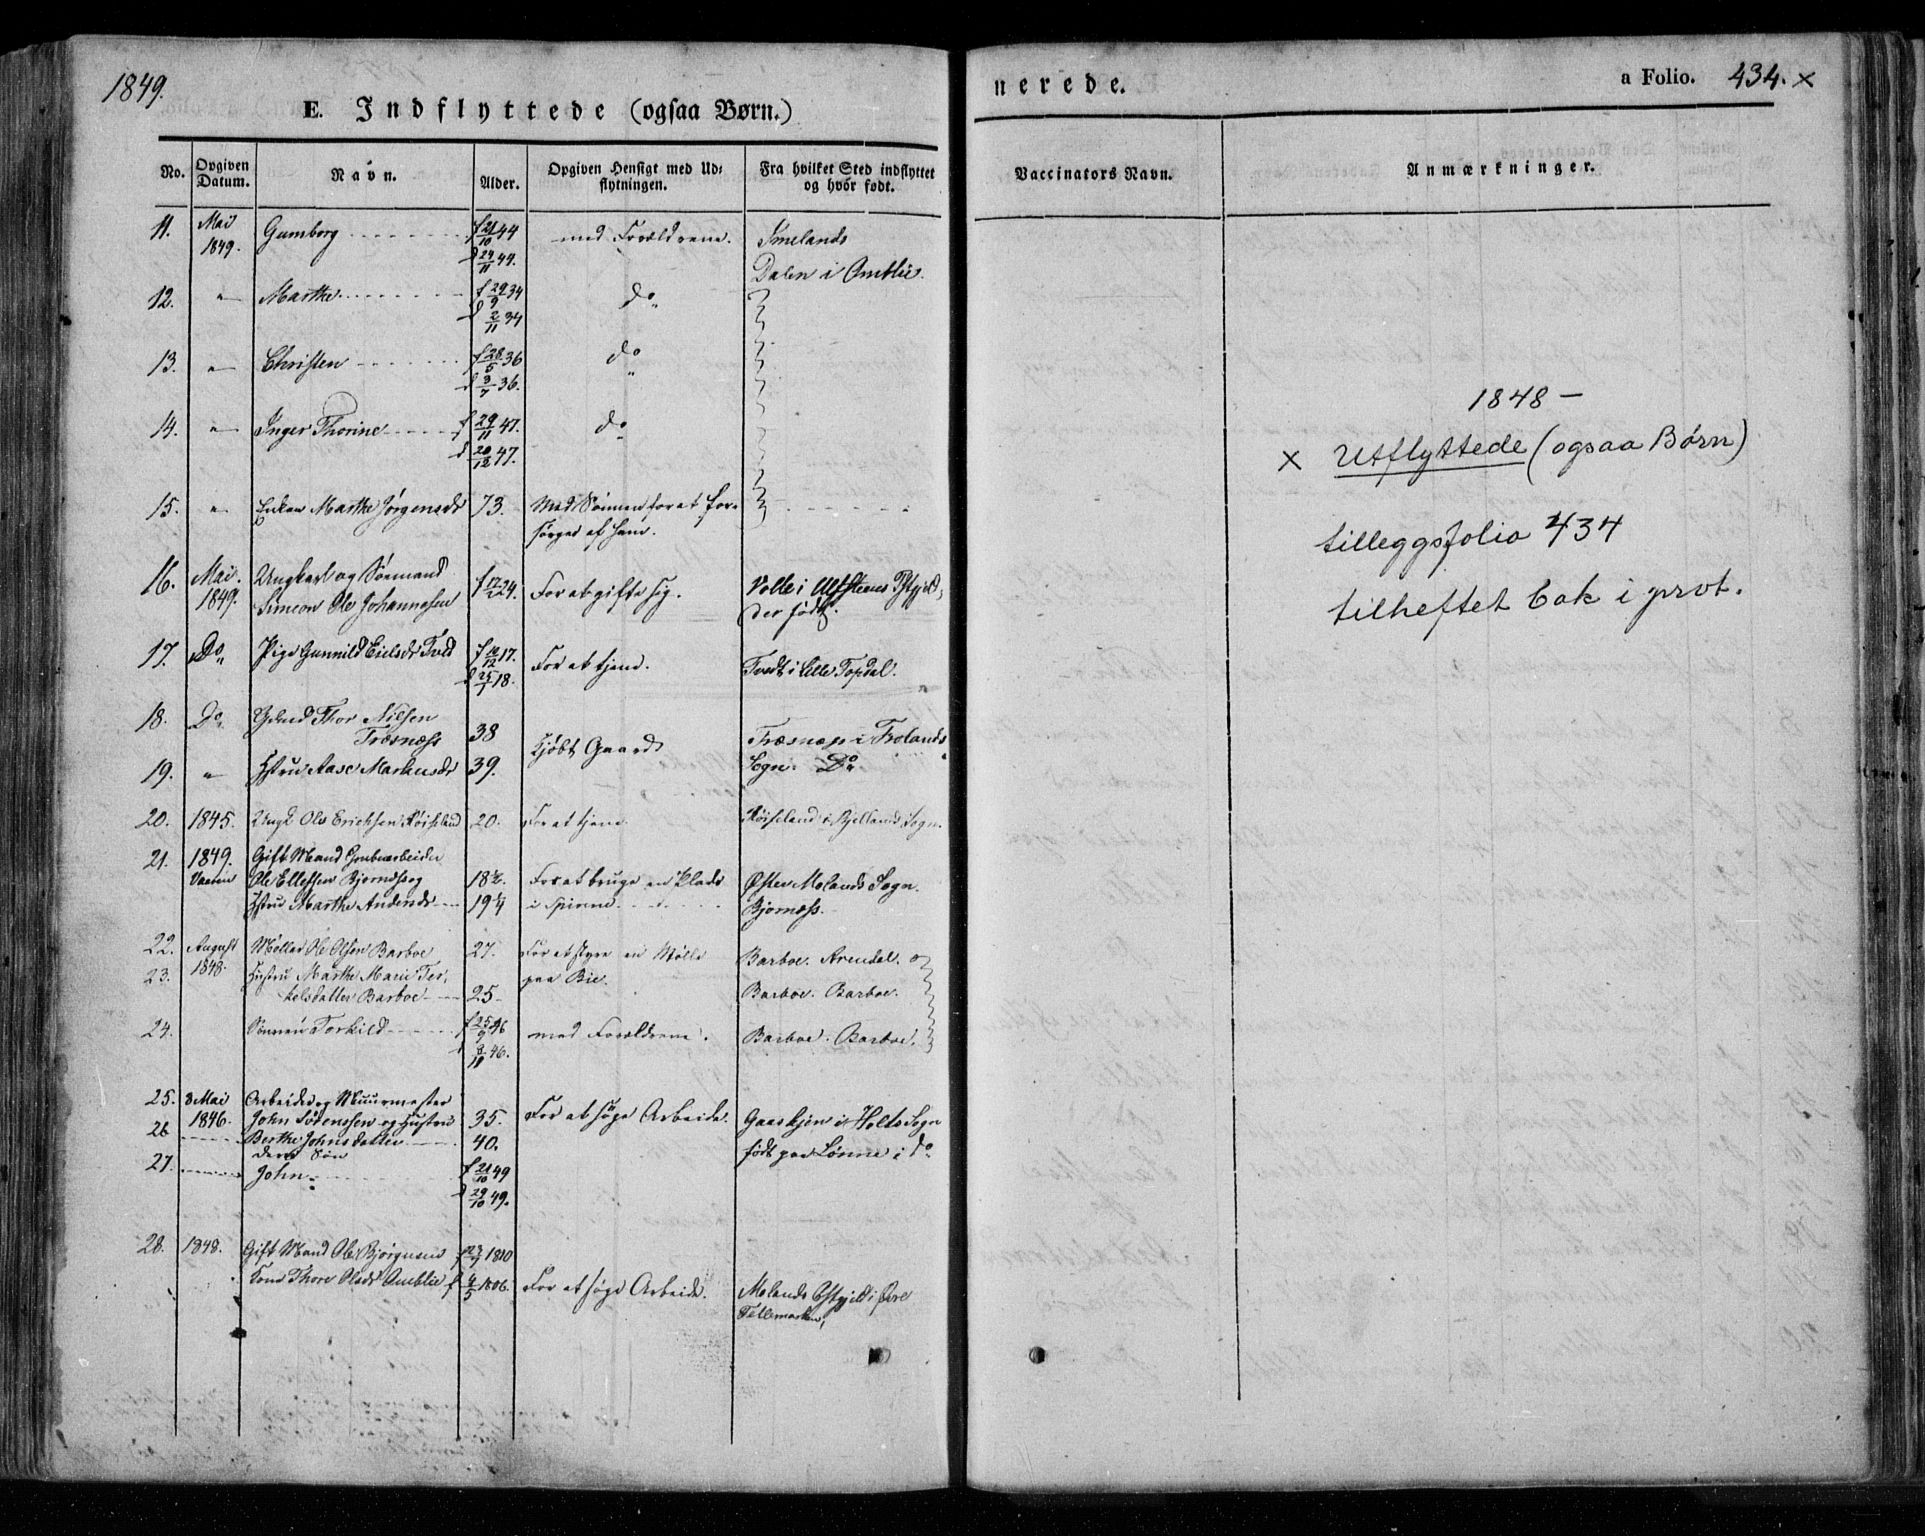 1849.
E. Indflyttede (ogsaa Børn.)
No. Opgiven Datum. Navn. Alder. Opgiven Hensigt med Udflytningen. Fra hvilket Sted indflyttet og hvor født.
11. Mai 1849. Gumborg f 21/10 44 med Forældrene. Smelands
d 24/11 44. Dalen i Omblie.
12. " Marthe f 29/9 34 do
d 2/11 34
13. " Christen f 28/5 36 do
d 3/7 36.
14. " Inger Thorine f 29/11 47. do
d 20/12 47.
15. " Enken Marthe Jørgensdr 73. Med Sønnen for at for-
sørges af ham.
16. Mai 1849. Ungkarl og Sømand
Simeon Ole Johannesen f 12/1 24. For at gifte sig. Volle i
der født.
17. Do Pige Gunnild Tved f 10/12 17. For at tjene. Tvedt i Lille Topdal.
d 25/1 18.
18. Do Thor Nilsen
Træsnæss 38 Kjøbt Gaard Træsnæss i Frolands
19. " Hstru Aase Markusdr 39. Sogn. Do
20. 1845. Ungk Ole Erichsen Røiseland 20. For at tjene Røiseland i Bjellands Sogn.
21. 1849. Gift Mand Grubearbeider
Ole Ellefsen Bjornæss og 18 For at bruge en Plads Øster Molands Sogn.
Hstru Marthe Andersdr 19 i Bjornæss.
22. August 1848. Møller Ole Olsen Barboe 27. For at styre en Mølle Barboe. Arendal.
23. Hustru Marthe Marie Ter- paa Bie.
kelsdatter Barboe 25 Barboe. Barboe.
24. Sønnen Torkild f 25/9 46 med Forældrene. Barboe. Barboe.
d 8/11 46.
25. 3 Mai Arbeider og Muurmester
1846. John Sørenssen og Hustru 35. For at søge Arbeide. Gaaskjen i Holts Sogn
26 Berthe Johnsdatter 40. født paa Lønne i do
deres Søn
27. John f 21/10 49
d 29/10 49.
28. 1848. Gift Mand Ole Bjørgusen f 1810
Kone Thore Olsdr Omblie f 4/5 1806. For at søge Arbeide. Molands Pstgjeld i Øvre
Tellemarken,
nerede. a Folio. 434. x
Vaccinators Navn. Anmærkninger.
1848 —
x Utflyttede (ogsaa Børn)
tilleggsfolio 434
tilheftet bak i prot.